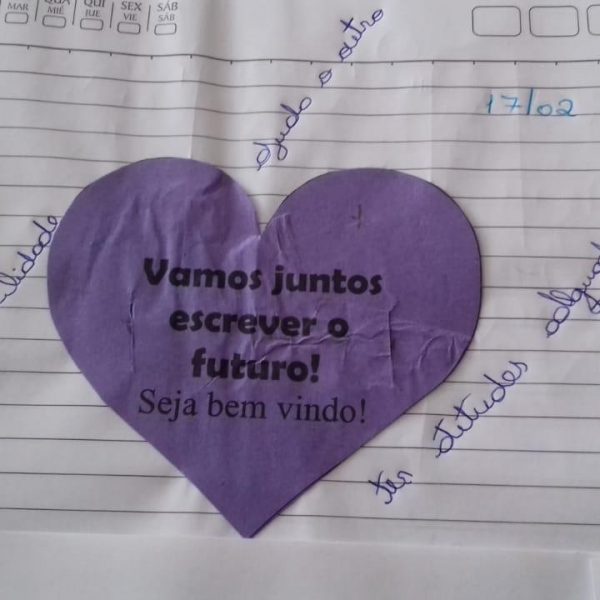 MAR
MIÉ
QUI
JUE
SEX
VIE
SÁB
SÁB
ajuda o outro
17/02
Vamos juntos
escrever o
futuro!
Seja bem vindo!
ter atitudes